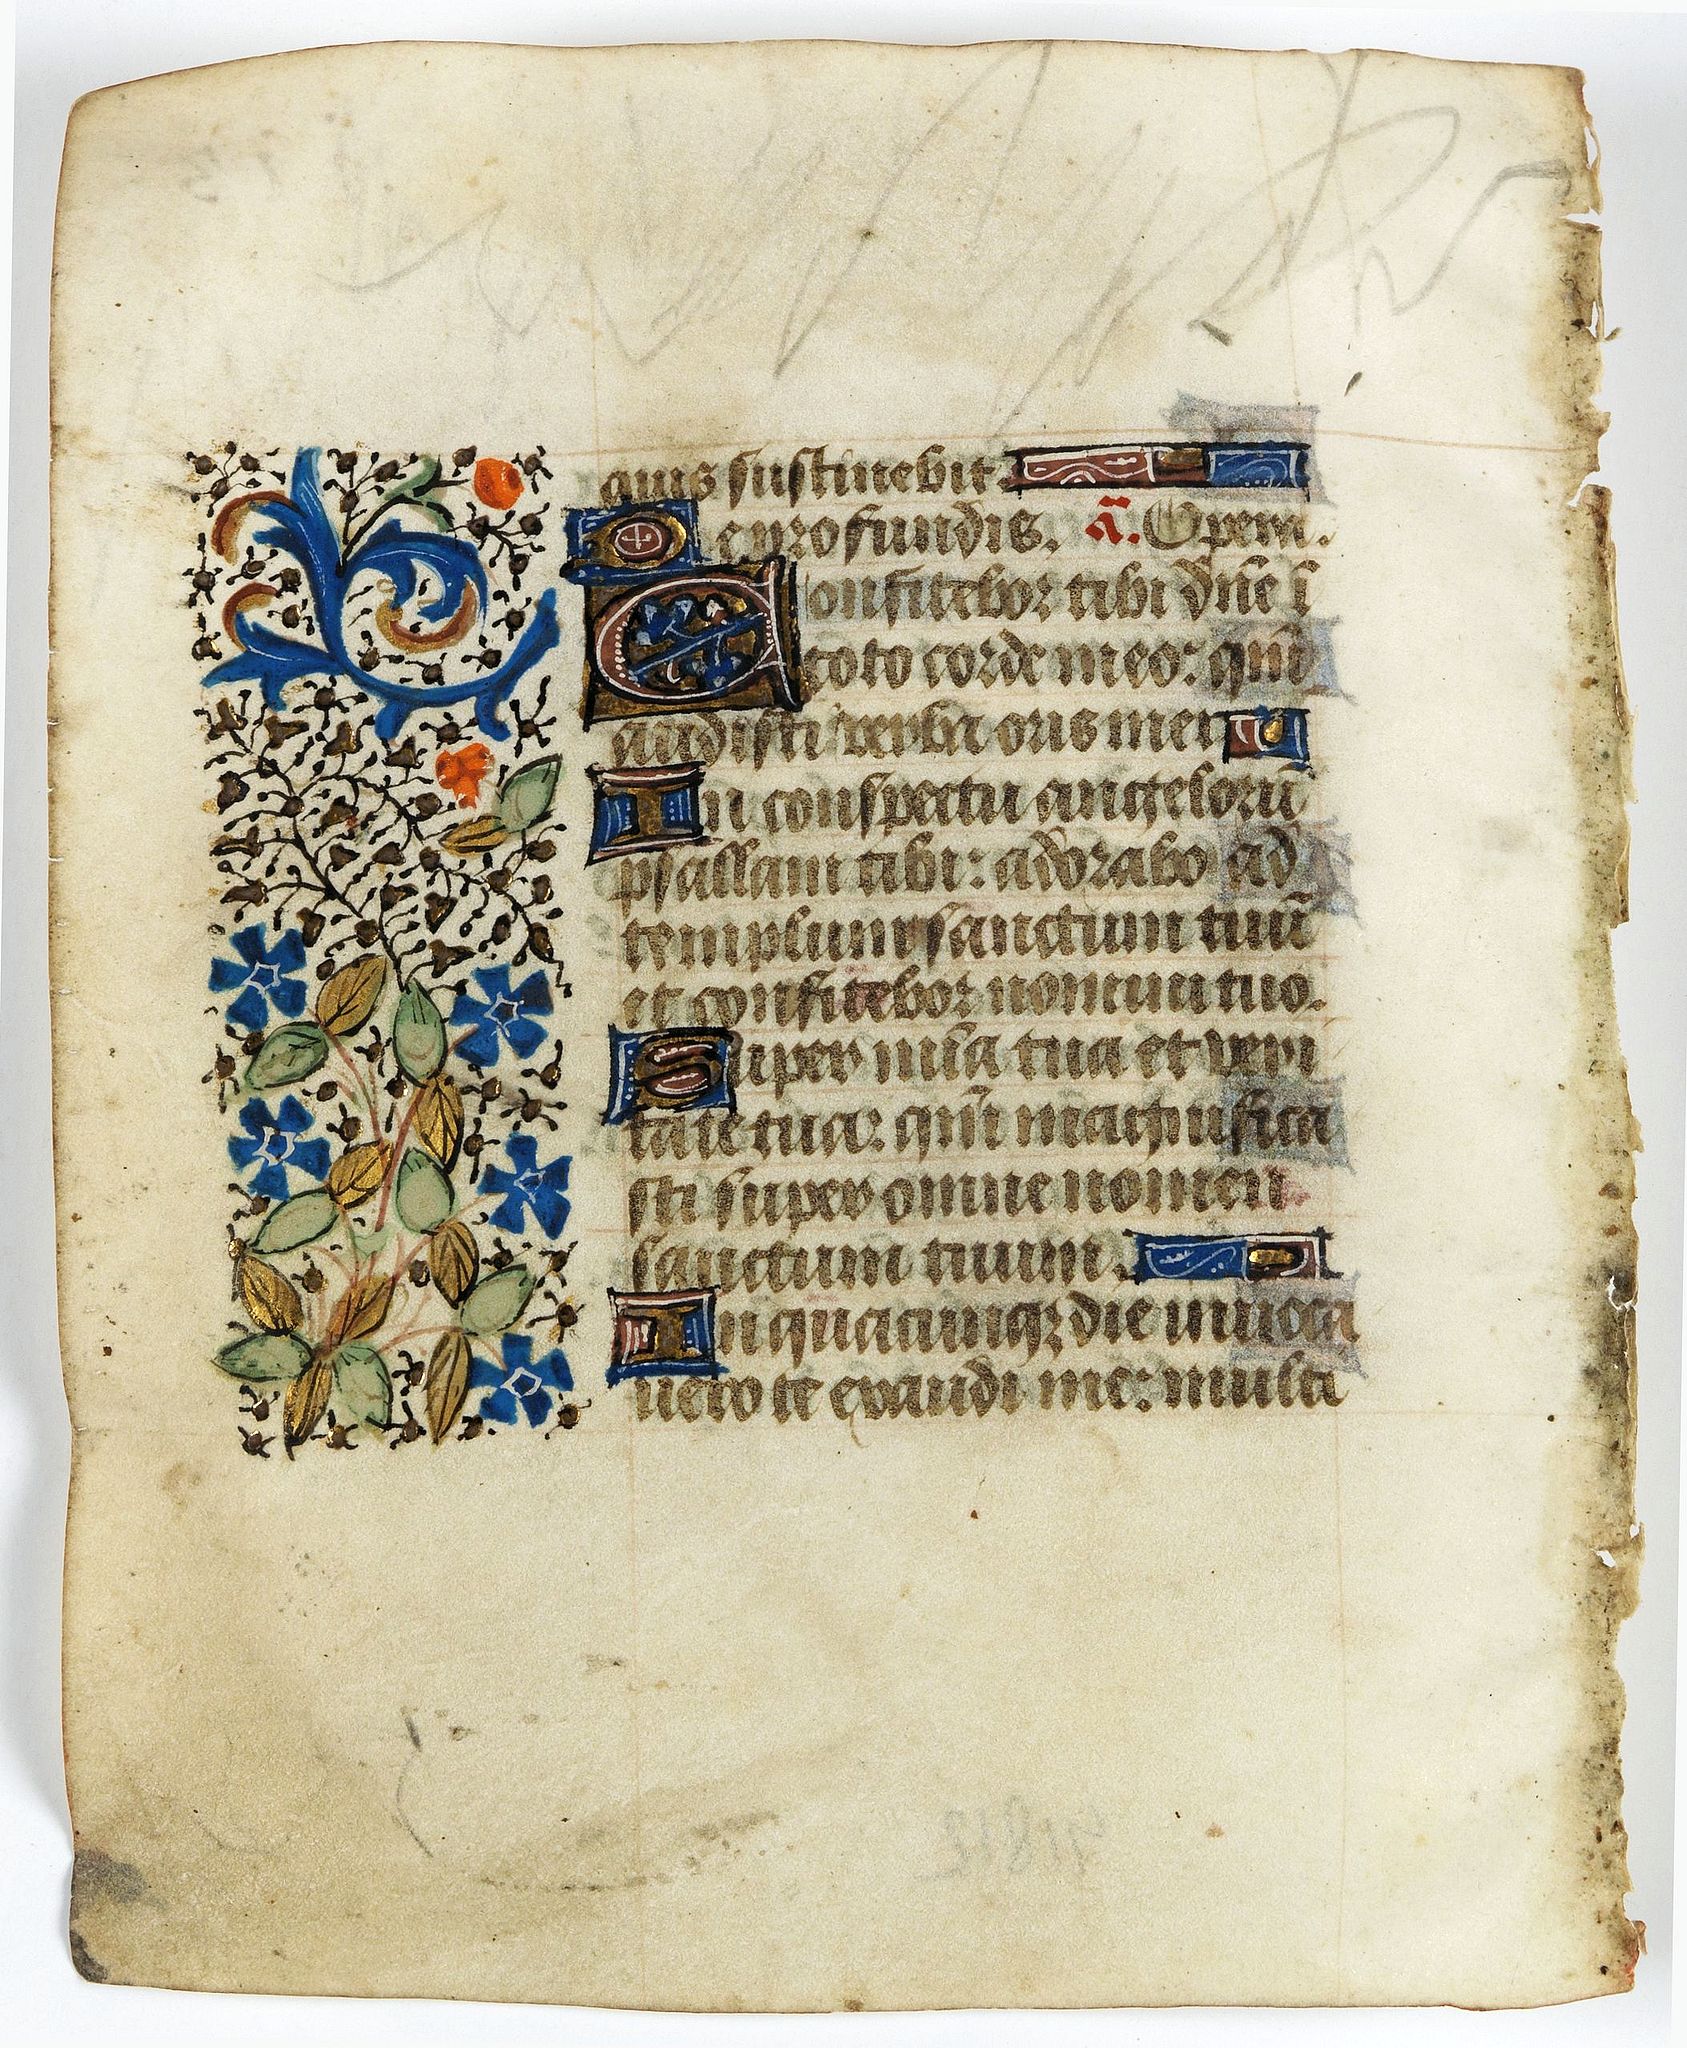 quis sustinebit.
De profundis. a͞. Opem.
Confitebor tibi dn̄e ī
toto corde meo: qm̄
audisti verba oris mei
In conspectu angelorū
psallam tibi: adorabo ad
templum sanctum tuū
et confitebor nomini tuo.
Super mīa tua et veri
tate tua: qm̄ magnifica
sti super omne nomen
sanctum tuum.
In quacunqꝫ die inuoca
uero te exaudi me: multi